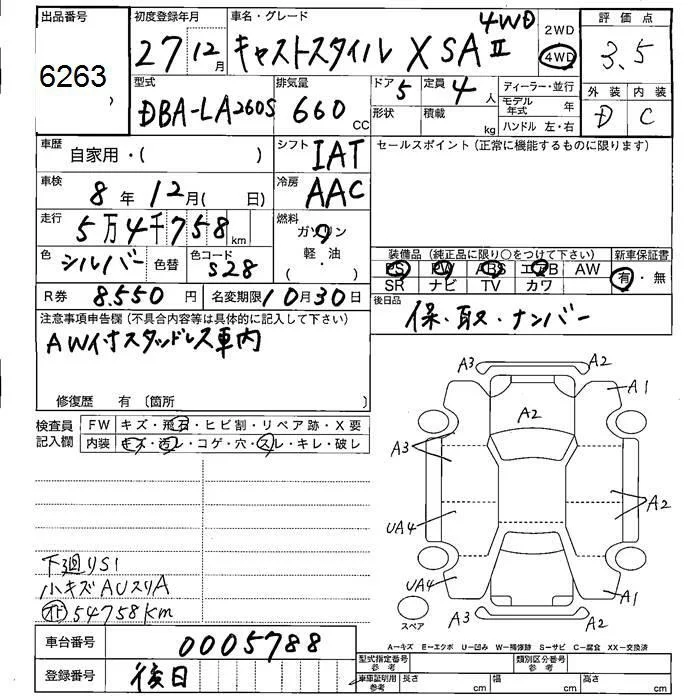 出品番号
6263
初度登録年月
27年12月
車名・グレード
キャストスタイル X SAⅡ 4WD
2WD
4WD
評価点
3.5
外装 内装
D C
型式
DBA-LA260S
排気量
660 CC
ドア 5
形状
定員 4人
積載 kg
ディーラー・並行
モデル年式 年
ハンドル 左・右
車歴
自家用・( )
シフト
IAT
セールスポイント(正常に機能するものに限ります)
車検
8年12月( 日)
冷房
AAC
走行
5万4千758km
燃料
ガソリン
軽・油
( ・ )
色
シルバー
色替
色コード
S28
装備品(純正品に限り○をつけて下さい)
PS PW ABS エアB AW
SR ナビ TV カワ
新車保証書
有・無
R券 8.550円
名変期限 10月30日
後日品
保・取・ナンバー
注意事項申告欄(不具合内容等は具体的に記入して下さい)
AW付スタッドレス車内
修復歴 有 〔箇所 〕
検査員記入欄
FW キズ・飛石・ヒビ割・リペア跡・X要
内装 キズ・汚レ・コゲ・穴・スレ・キレ・破レ
下3回リS1
小キズAUスリA
オド 54758km
A3
A2
A1
A2
A3
A2
UA4
UA4
A1
A3
A2
スペア
A−キズ E−エクボ U−凹み W−補修跡 S−サビ C−腐食 XX−交換済
車台番号
0005788
登録番号
後日
型式指定番号 参考
類別区分番号 参考
車庫証明用 参考
長さ cm
幅 cm
高さ cm